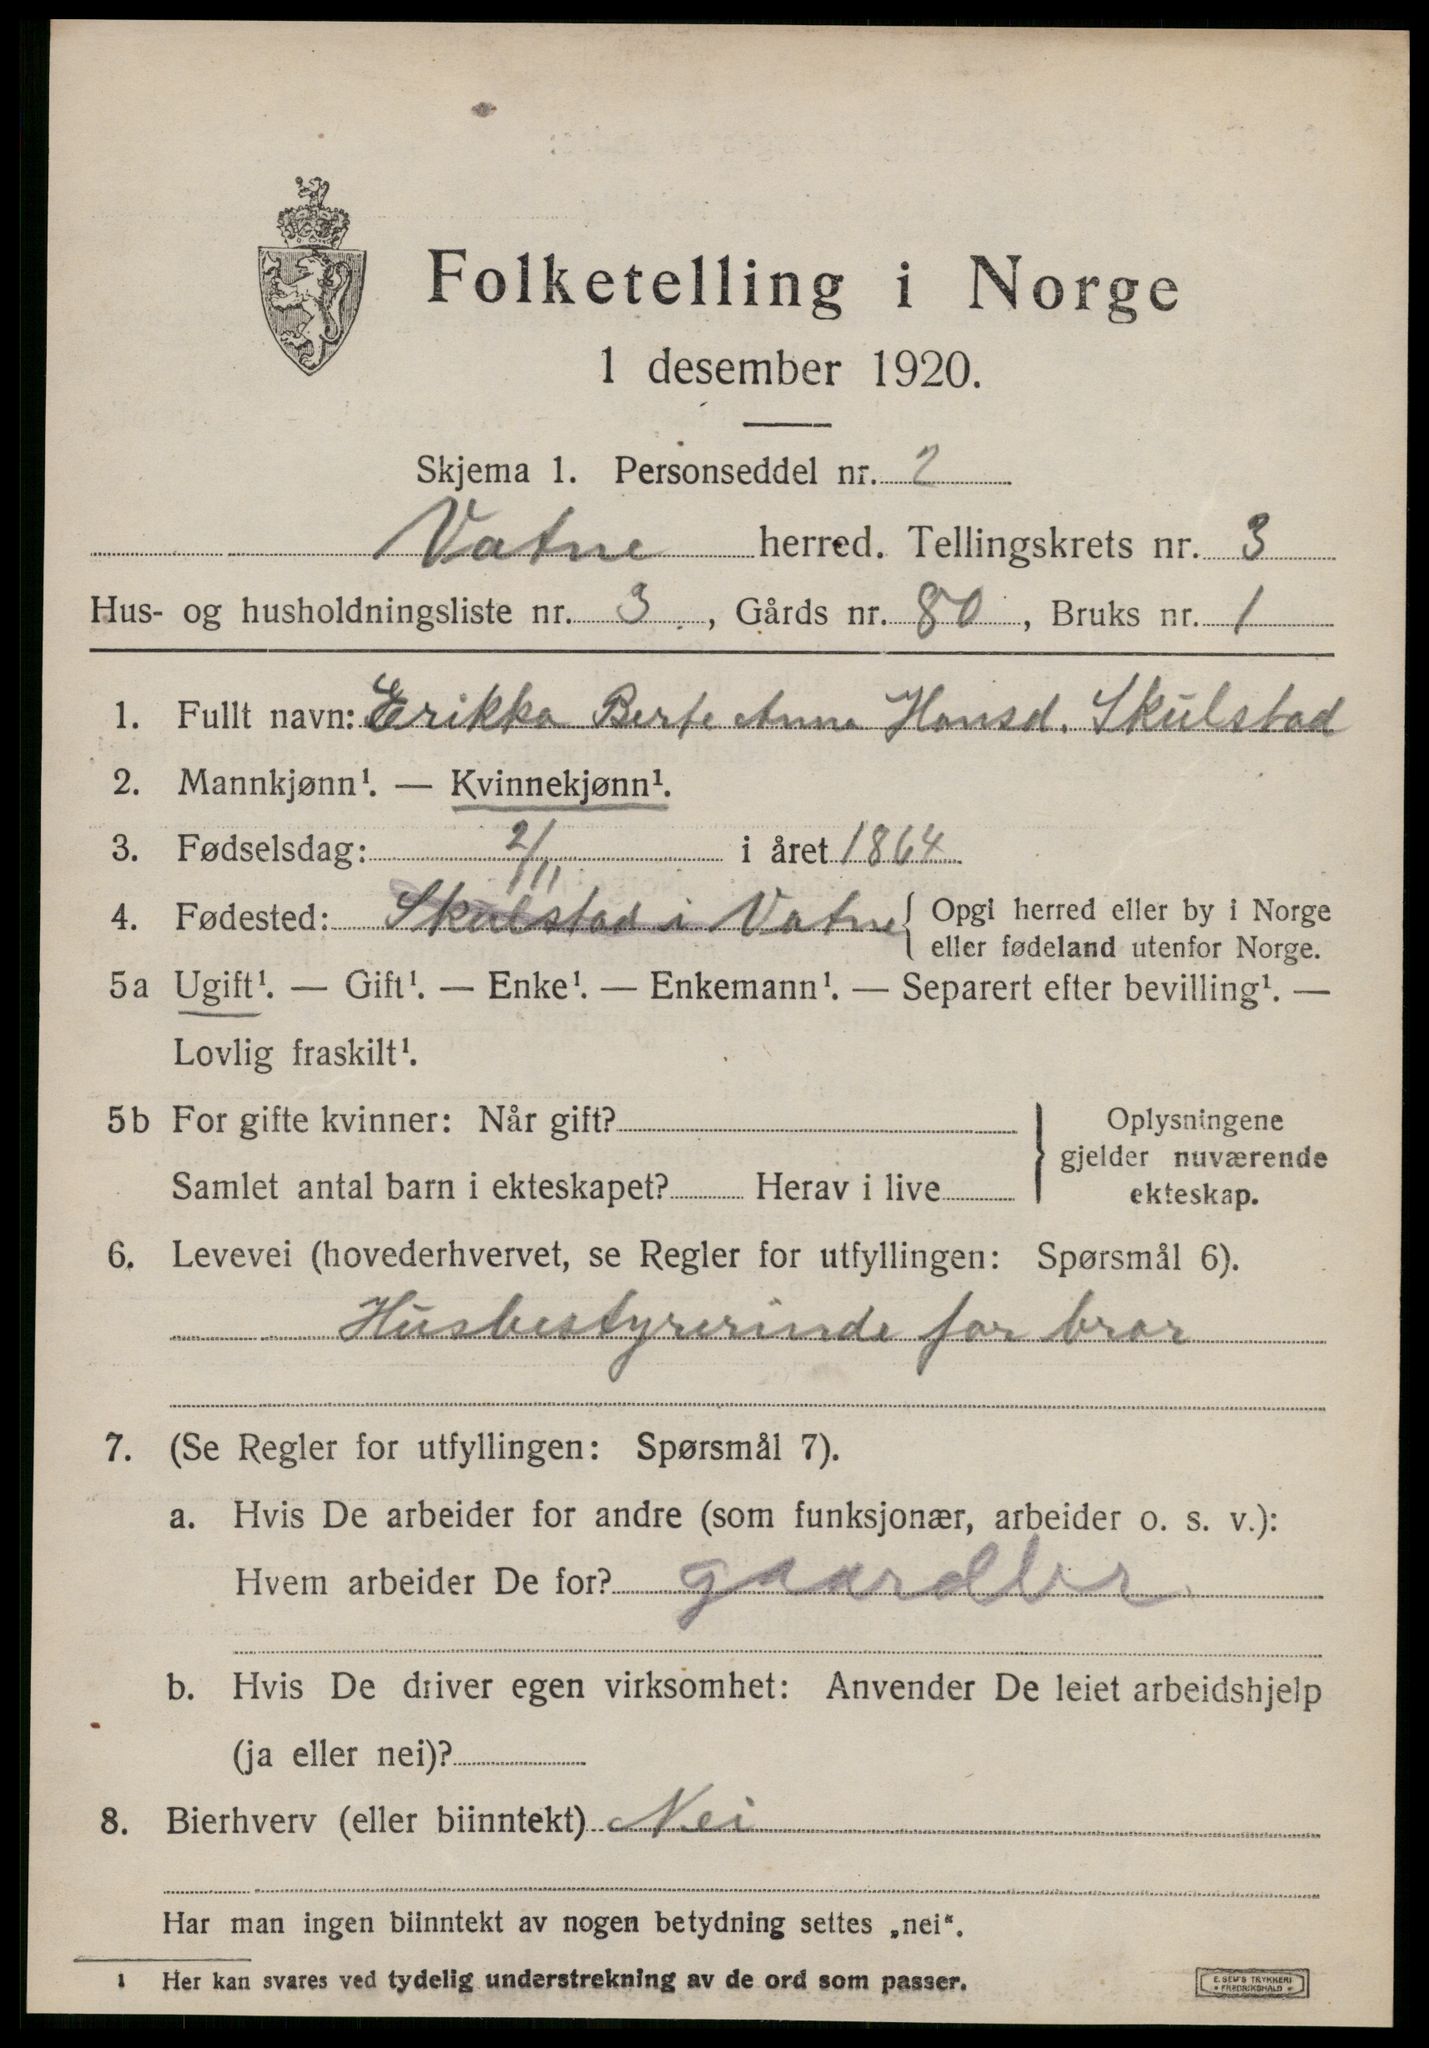 Folketelling i Norge
1 desember 1920.
Skjema 1. Personseddel nr. 2
Vatne herred. Tellingskrets nr. 3
Hus- og husholdningsliste nr. 3, Gårds nr. 80, Bruks nr. 1
1. Fullt navn: Erikka Berte Anna Hansd. Skulstad
2. Mannkjønn¹. — Kvinnekjønn¹.
3. Fødselsdag: 2/11 i året 1864
4. Fødested: Skulstad i Vatne { Opgi herred eller by i Norge
eller fødeland utenfor Norge.
5a Ugift¹. — Gift¹. — Enke¹. — Enkemann¹. — Separert efter bevilling¹. —
Lovlig fraskilt¹.
5b For gifte kvinner: Når gift?
Samlet antal barn i ekteskapet? Herav i live
} Oplysningene
gjelder nuværende
ekteskap.
6. Levevei (hovederhvervet, se Regler for utfyllingen: Spørsmål 6).
Husbestyrerinde for bror
7. (Se Regler for utfyllingen: Spørsmål 7).
a. Hvis De arbeider for andre (som funksjonær, arbeider o. s. v.):
Hvem arbeider De for?
b. Hvis De driver egen virksomhet: Anvender De leiet arbeidshjelp
(ja eller nei)?
8. Bierhverv (eller biinntekt) Nei
Har man ingen biinntekt av nogen betydning settes „nei“.
1 Her kan svares ved tydelig understrekning av de ord som passer.
E. SEM'S TRYKKERI
FREDRIKSHALD